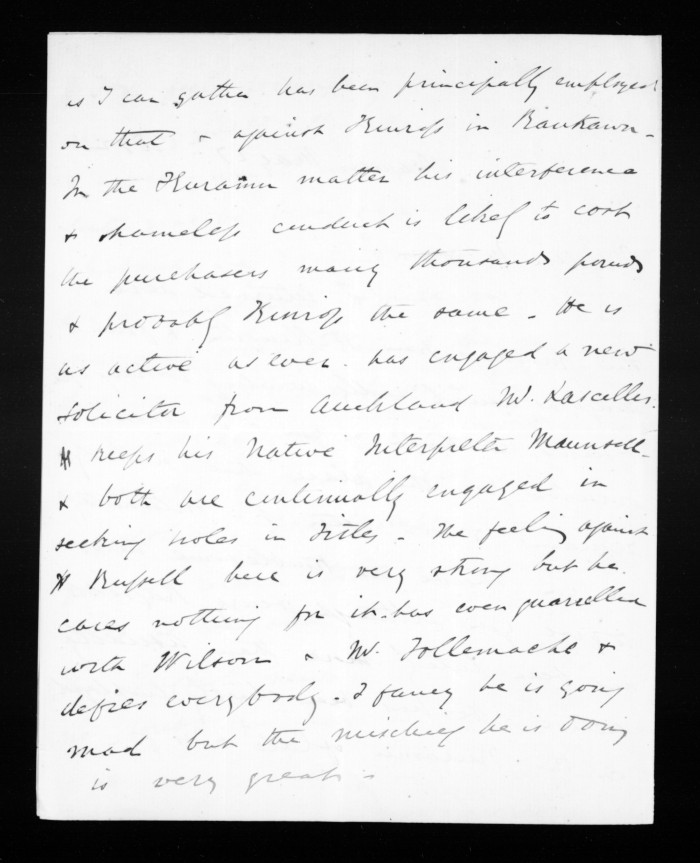 as I can gather has been principally employed
on that & against Kinross in Raukawa -
In the Kuramu matter his interference
& shameless conduct is likely to cost
the purchasers many thousands pounds
& probably Kinross the same - He is
as active as ever. has engaged a new
Solicitor from Auckland Mr. Lascelles.
keeps his Native Interpreter Maunsell -
& both are continually engaged in
seeking holes in Titles - The feeling against
H Russell here is very strong but he
cares nothing for it - has even quarrelled
with Wilson & Mr. Tollemache &
defies everybody - I fancy he is going
mad but the mischief he is doing
is very great -